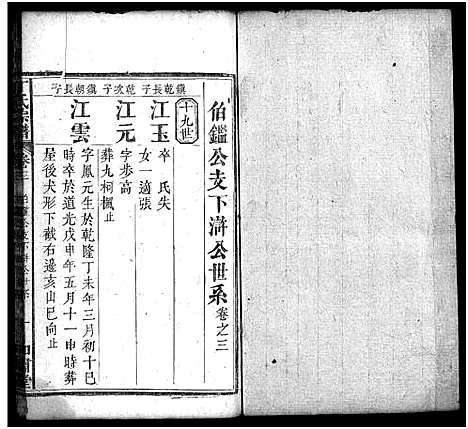 伯鑑公支下滸公世系 卷之三
十九世
鎮乾長子
江玉
卒 氏失
女一適張
乾次子
江元
字步高
葬九柯楓止
鎮朝長子
江雲
字鳳元生於乾隆丁未年三月初十巳
時卒於道光戊申年五月十一申時葬
屋後犬形下截右邊亥山巳向止
氏宗譜
卷三